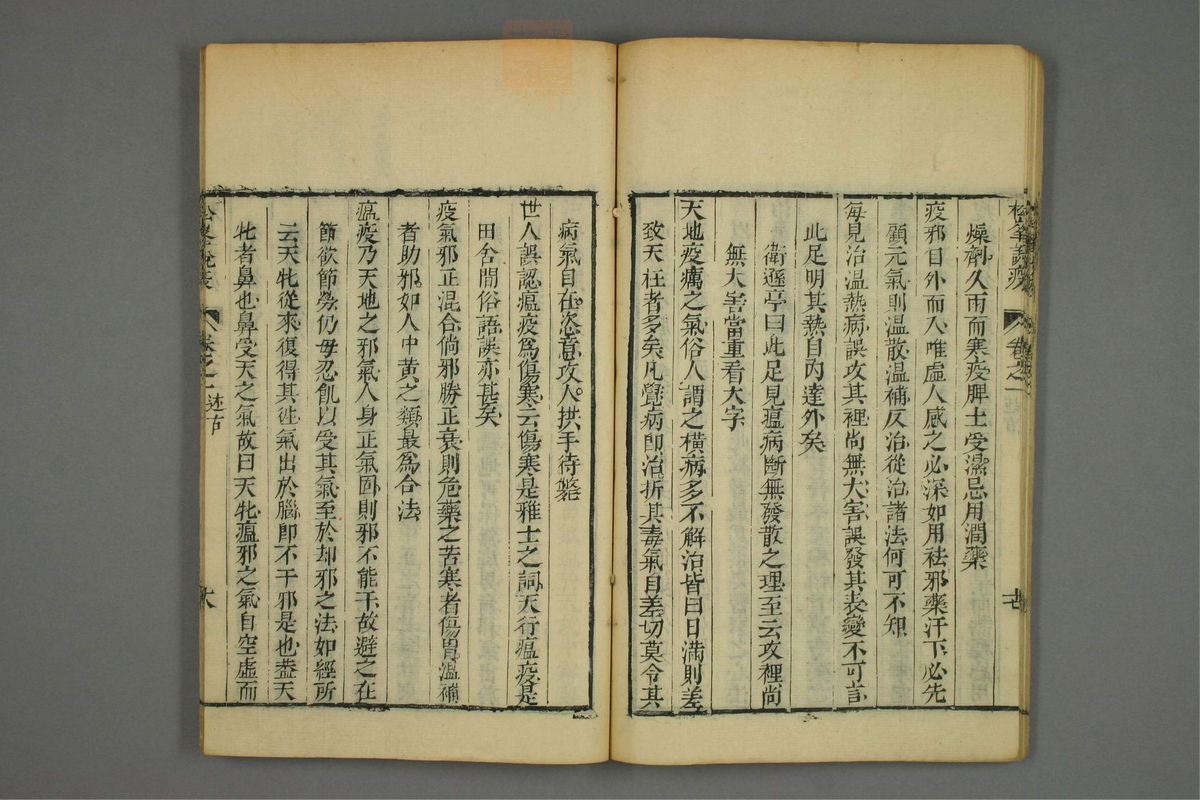 松峯說疫 卷之一 述古
燥劑久雨而寒疫脾土受濕忌用潤藥
疫邪自外而入唯虛人感之必深如用祛邪藥汗下必先
顧元氣則温散温補反治從治諸法何可不知
每見治温熱病誤攻其裡尚無大害誤發其表變不可言
此足明其熱自内達外矣
衛遜亭曰此足見瘟病斷無發散之理至云攻裡尚
無大害當重看大字
天地疫癘之氣俗人謂之橫病多不解治皆曰日滿則差
致夭枉者多矣凡覺病即治折其毒氣自差切莫令其
病氣自在恣意攻人拱手待斃
世人誤認瘟疫爲傷寒云傷寒是雅士之詞天行瘟疫是
田舍間俗語誤亦甚矣
疫氣邪正混合倘邪勝正衰則危藥之苦寒者傷胃温補
者助邪如人中黄之類最爲合法
瘟疫乃天地之邪氣人身正氣固則邪不能干故避之在
節欲節勞仍毋忍飢以受其氣至於却邪之法如經所
云天牝從來復得其徃氣出於腦即不干邪是也盖天
牝者鼻也鼻受天之氣故曰天牝瘟邪之氣自空虛而
松峯說疫 卷之一 述古